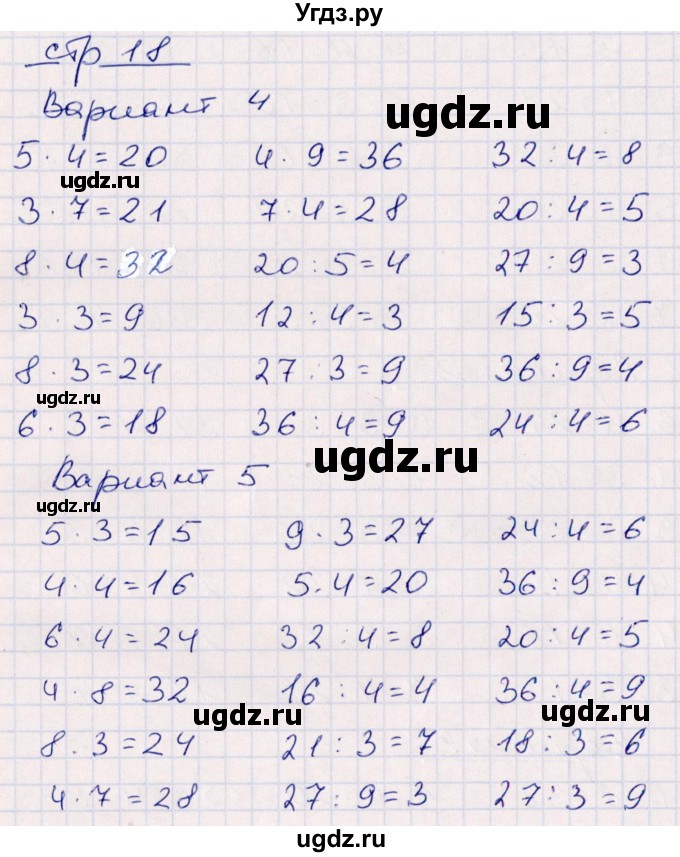 Угдз.ру
стр 18
Вариант 4
ugdz.ru
5 · 4 = 20 4 · 9 = 36 32 : 4 = 8
ugdz.ru
3 · 7 = 21 7 · 4 = 28 20 : 4 = 5
8 · 4 = 32 20 : 5 = 4 27 : 9 = 3
3 · 3 = 9 12 : 4 = 3 15 : 3 = 5
8 · 3 = 24 27 : 3 = 9 36 : 9 = 4
ugdz.ru
6 · 3 = 18 36 : 4 = 9 24 : 4 = 6
ugdz.ru
Вариант 5
ugdz.ru
5 · 3 = 15 9 · 3 = 27 24 : 4 = 6
4 · 4 = 16 5 · 4 = 20 36 : 9 = 4
6 · 4 = 24 32 : 4 = 8 20 : 4 = 5
4 · 8 = 32 16 : 4 = 4 36 : 4 = 9
ugdz.ru ugdz.ru
8 · 3 = 24 21 : 3 = 7 18 : 3 = 6
4 · 7 = 28 27 : 9 = 3 27 : 3 = 9
ugdz.ru